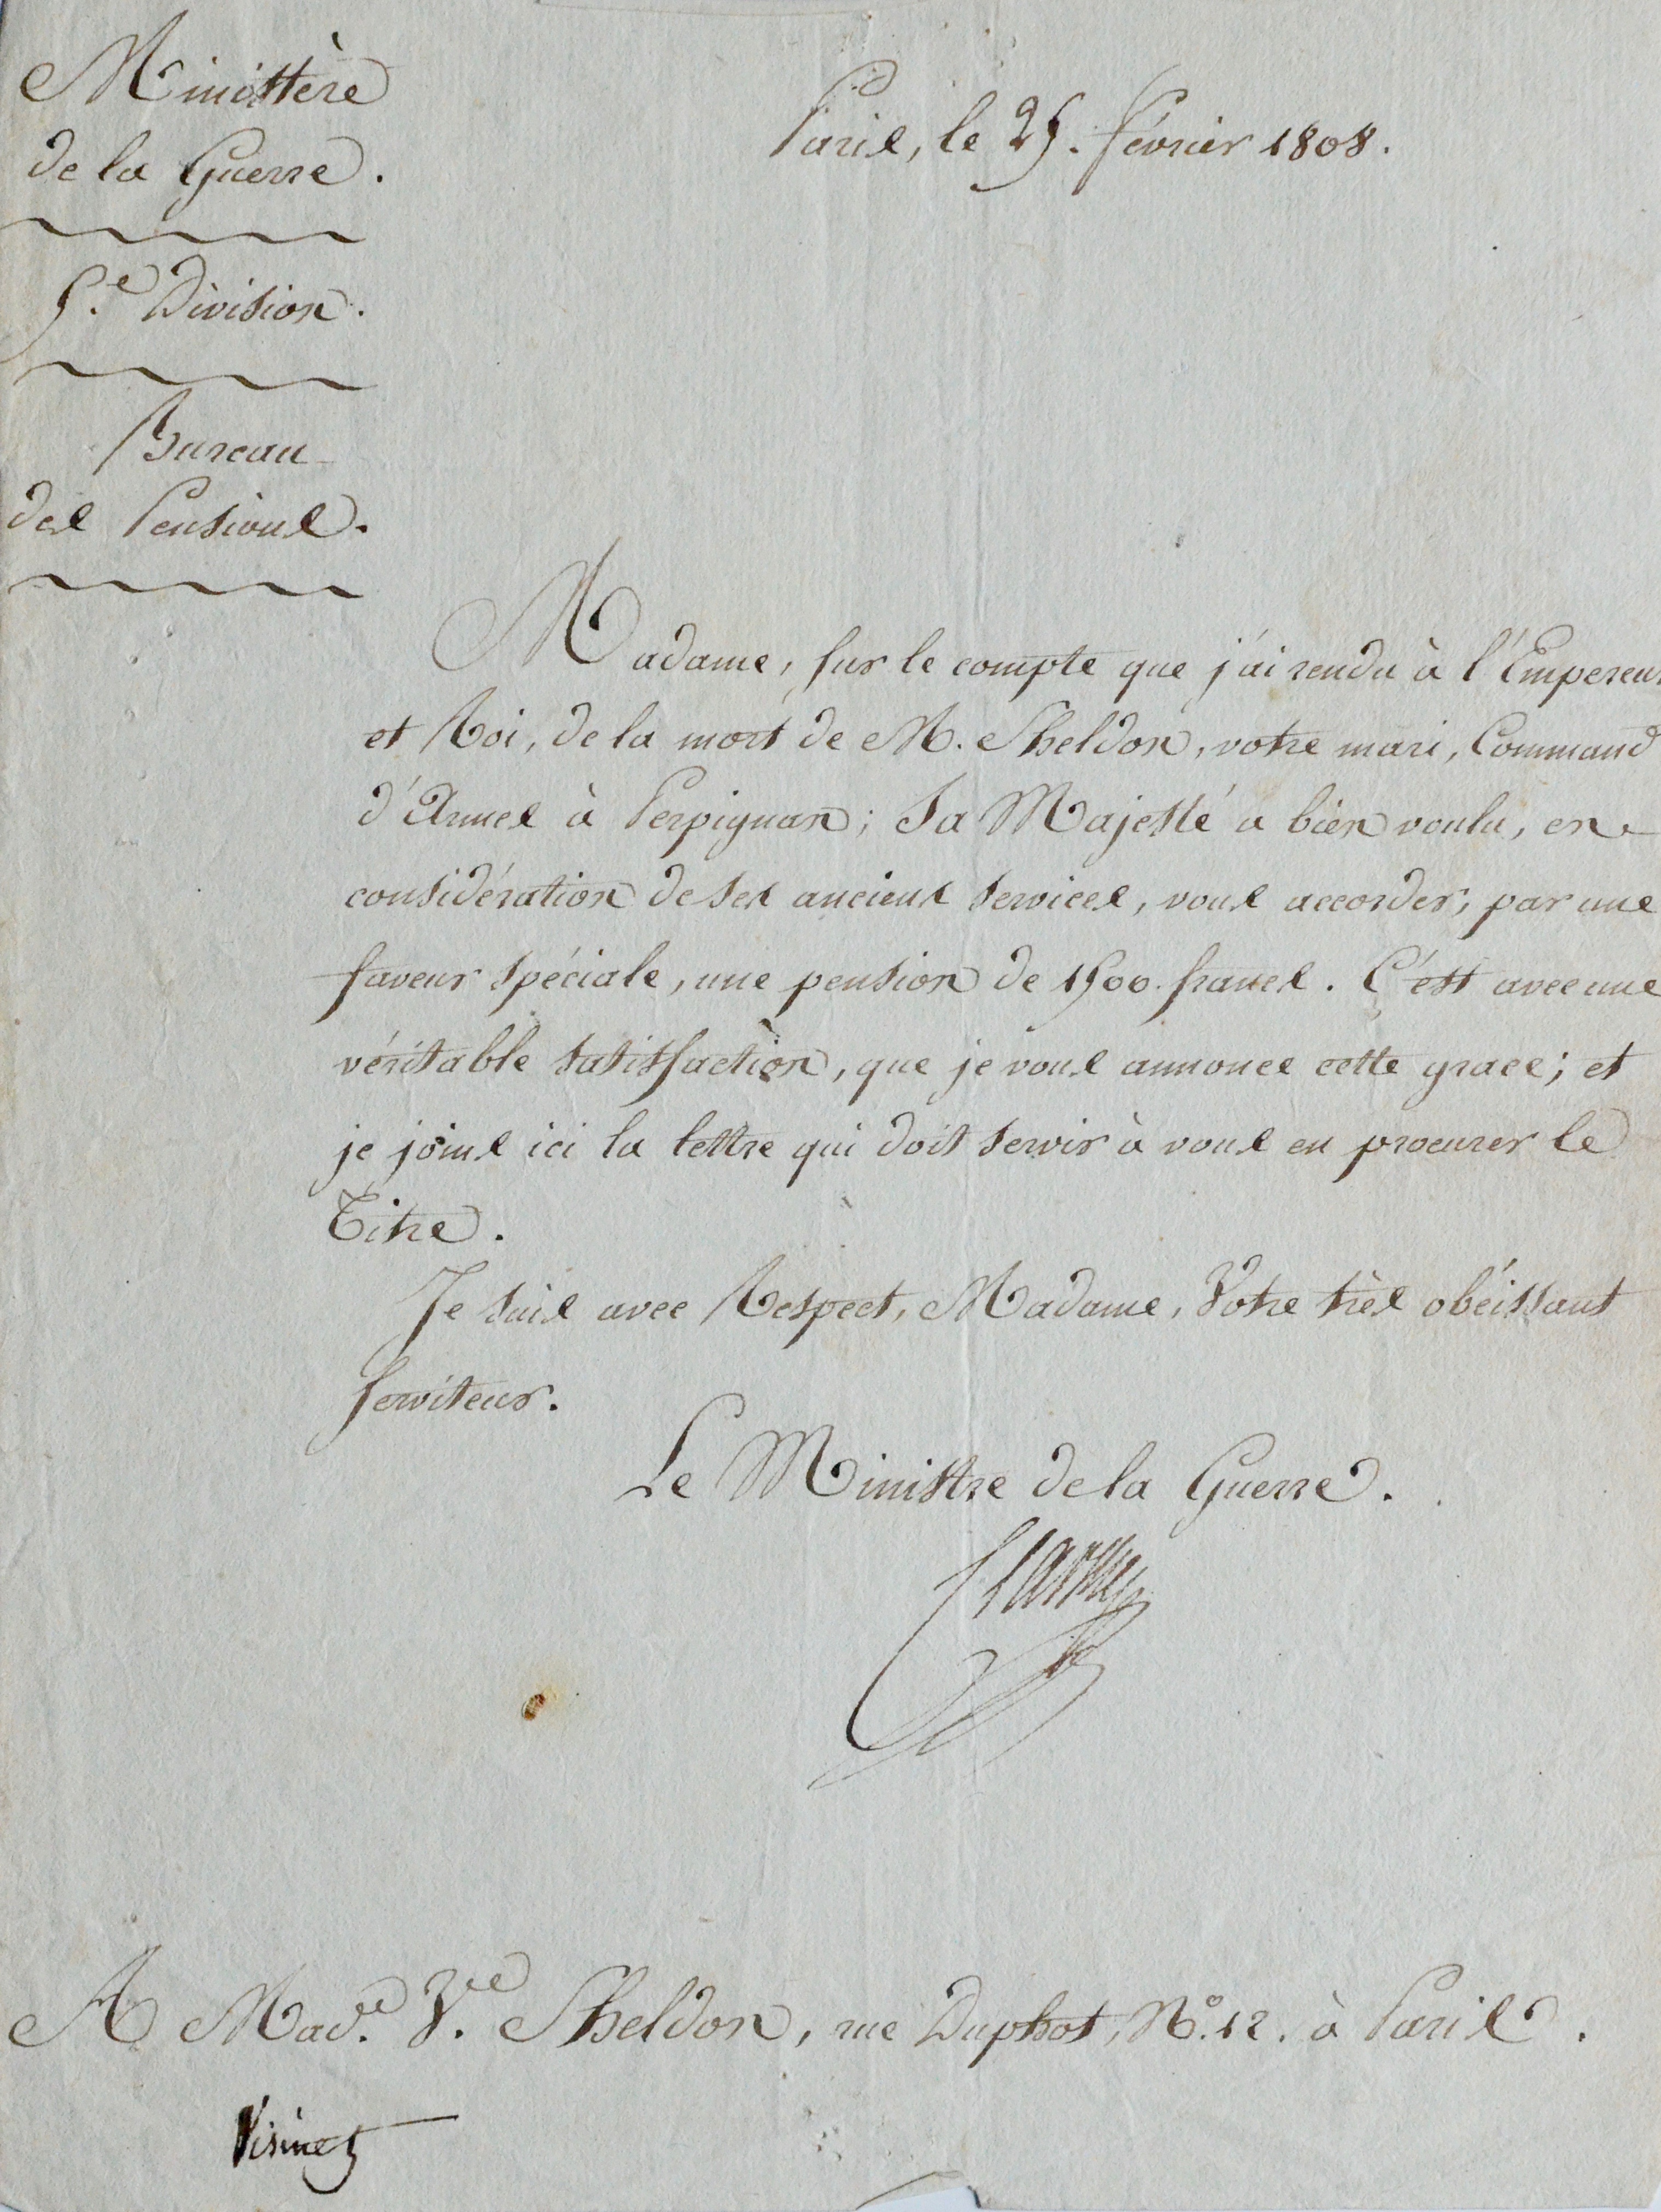 Ministère
de la Guerre.
5.e Division.
Bureau
des Pensions.
Paris, le 25. février 1808.
Madame, sur le compte que j'ai rendu à l'Empereur
et Roi, de la mort de M. Sheldon, votre mari, Command.d
d'Armes à Perpignan; Sa Majesté a bien voulu, en
considération de ses anciens services, vous accorder, par une
faveur spéciale, une pension de 1500. francs. C'est avec une
véritable satisfaction, que je vous annonce cette grace; et
je joins ici la lettre qui doit servir à vous en procurer le
Titre.
Je suis avec Respect, Madame, Votre très obéissant
serviteur.
Le Ministre de la Guerre.
A Mad.e V.ve Sheldon, rue Duphot, N.° 12. à Paris.